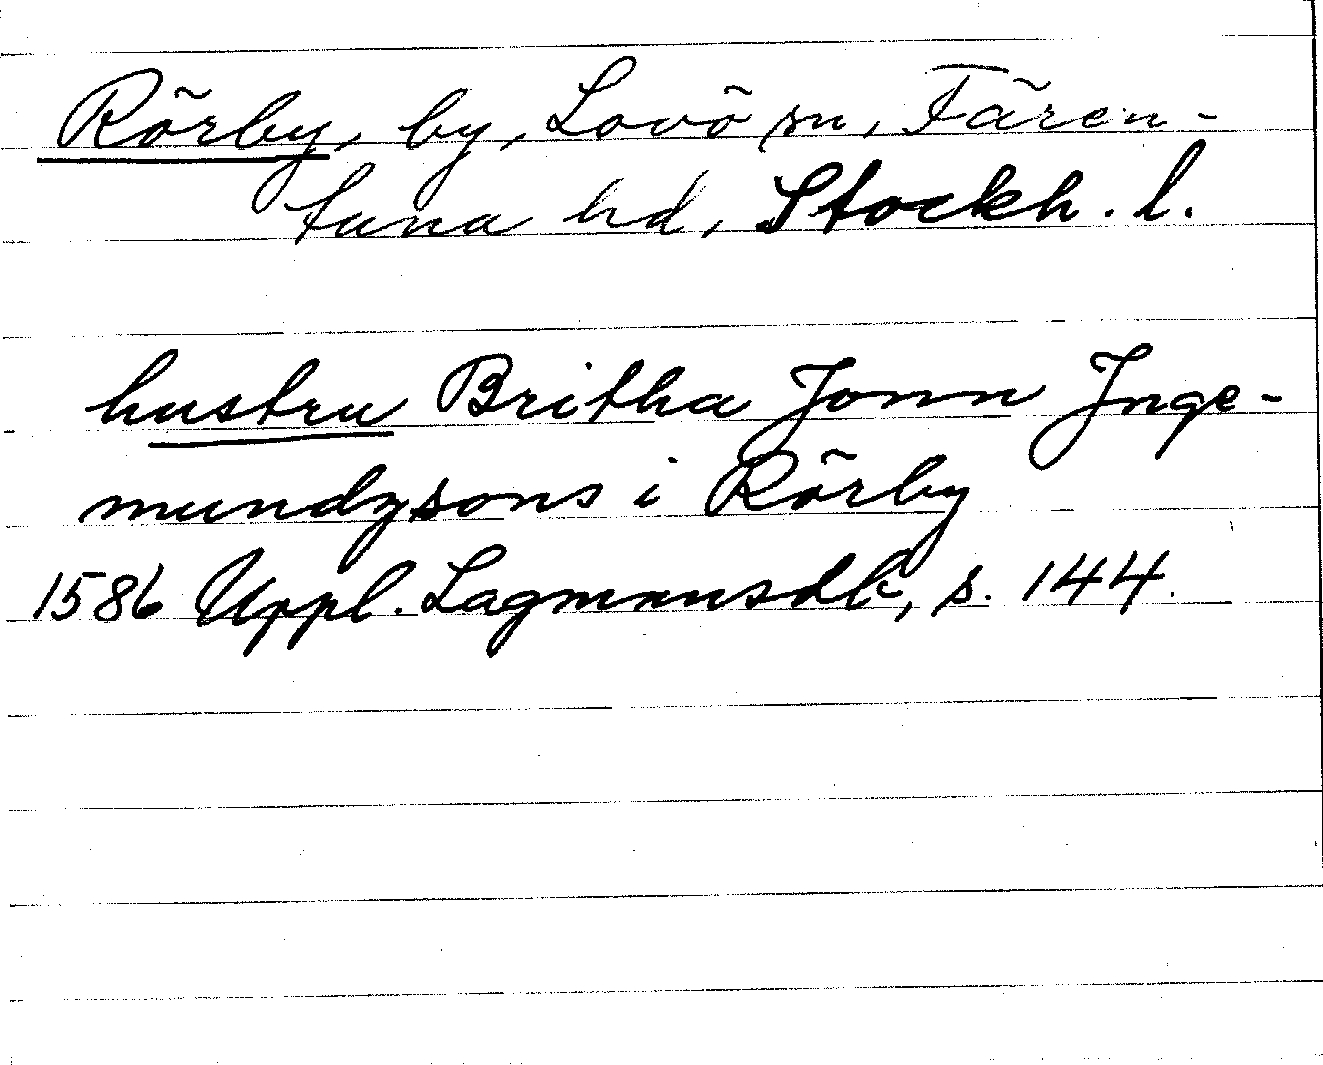 Rörby, by, Lovö sn, Fären-
tuna hd, Stockh. l.
hustru Britha Jonn Inge-
mundzsons i Rörby
1586 Uppl. Lagmansdb, s. 144.